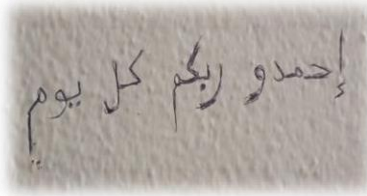 إحمدو ربكم كل يوم